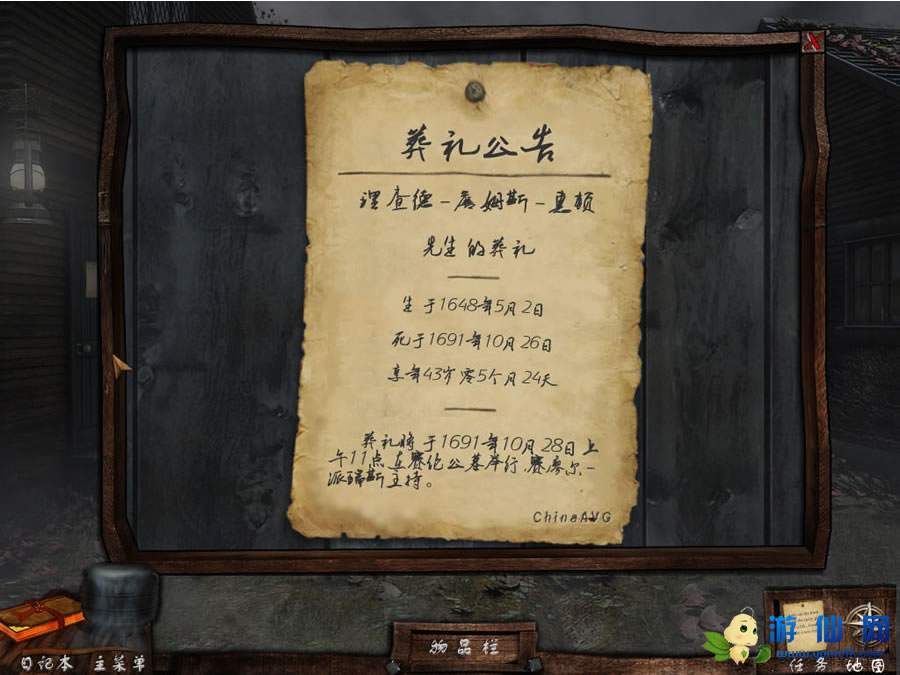 葬礼公告
理查德-詹姆斯-惠顿
先生的葬礼
生于1648年5月2日
死于1691年10月26日
享年43岁零5个月24天
葬礼将于1691年10月28日上
午11点在赛伦公墓举行.赛缪尔-
派瑞斯主持。
ChinaAVG
物品栏
日记本 主菜单
任务 地图
游仙网